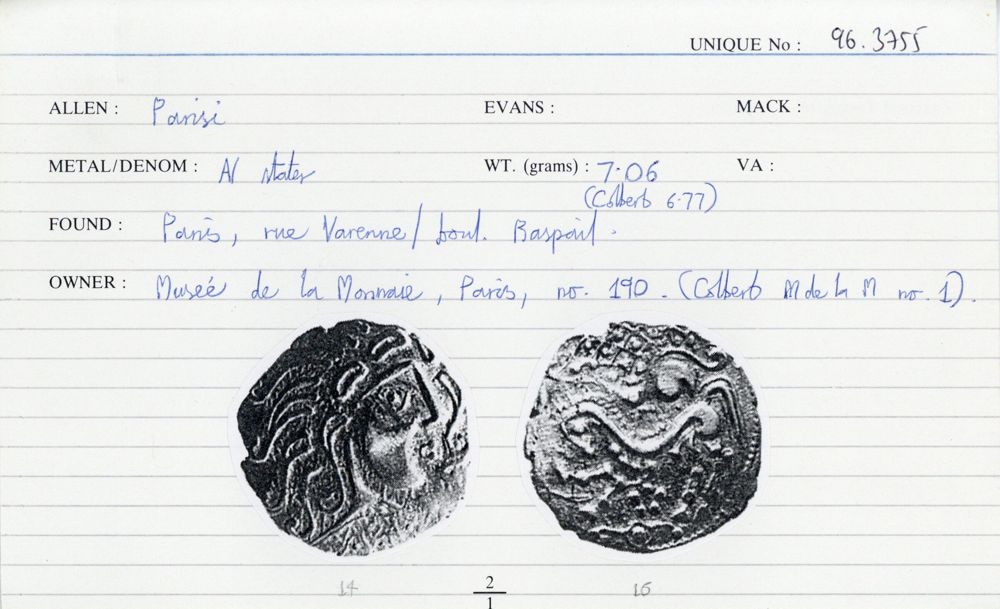 UNIQUE No : 96.3755
ALLEN : Parisi EVANS : MACK :
METAL/DENOM : AV stater WT. (grams) : 7.06 VA :
(Colbert 6.77)
FOUND : Paris, rue Varenne/boul. Raspail.
OWNER : Museé de la Monnaie, Paris, no. 190. (Colbert M de la M no. 1).
14 2 16
1